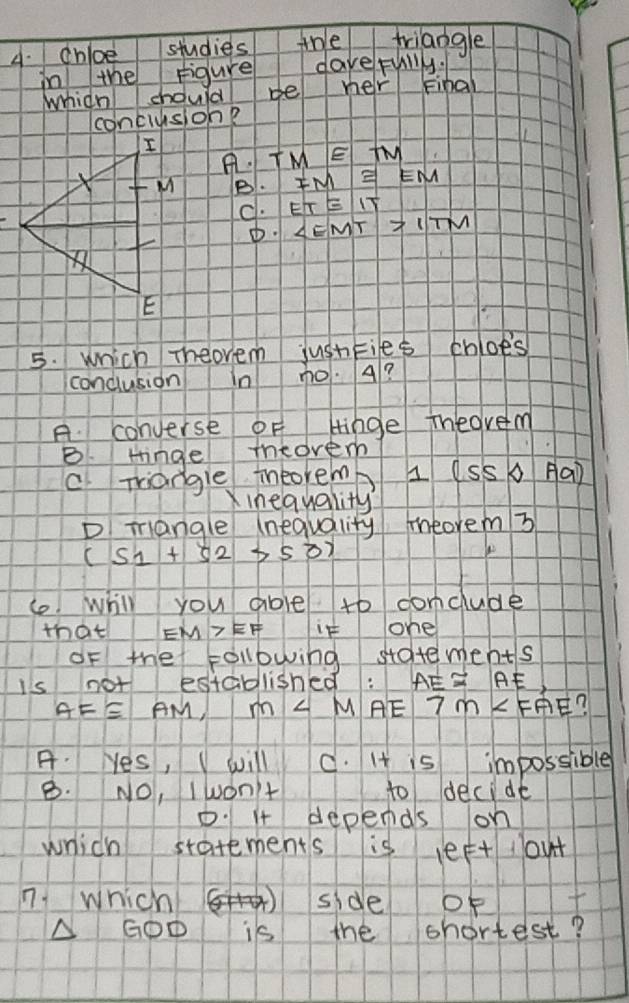 4. Chloe studies the triangle
in the Figure carefully.
Which should be her Final
conclusion?
I
M
E
A. TM ≅ TM
B. IM ≅ EM
C. ET ≅ IT
D. <EMT > ITM
5. Which Theorem justifies chloe's
conclusion in no. 4?
A. converse OF Hinge Theorem
B. Hinge theorem
C. Triangle Theorem 1 (SS Aa)
inequality
D. Triangle Inequality Theorem 3
(S1 + S2 > S3)
6. Will you able to conclude
that EM > EF if one
OF the Following statements
is not established: AE ≅ AE,
AF ≅ AM, m < MAE > m < FAE?
A. Yes, I will
B. No, I won't
C. It is impossible
to decide
D. It depends on
which statements is left out
7. Which side OF
Δ GOD is the shortest?